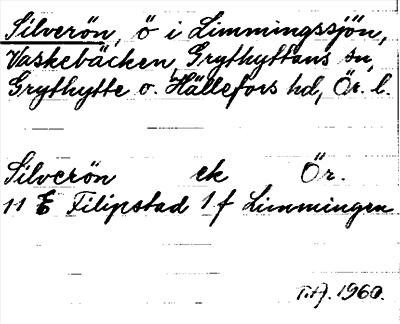 Silverön, ö i Limmingssjön,
Vaskebäcken, Grythyttans sn,
Grythytte o. Hällefors hd, Ör. l.
Silverön ek Ör.
11 E Filipstad 1 f Limmingen
T.A. 1960.